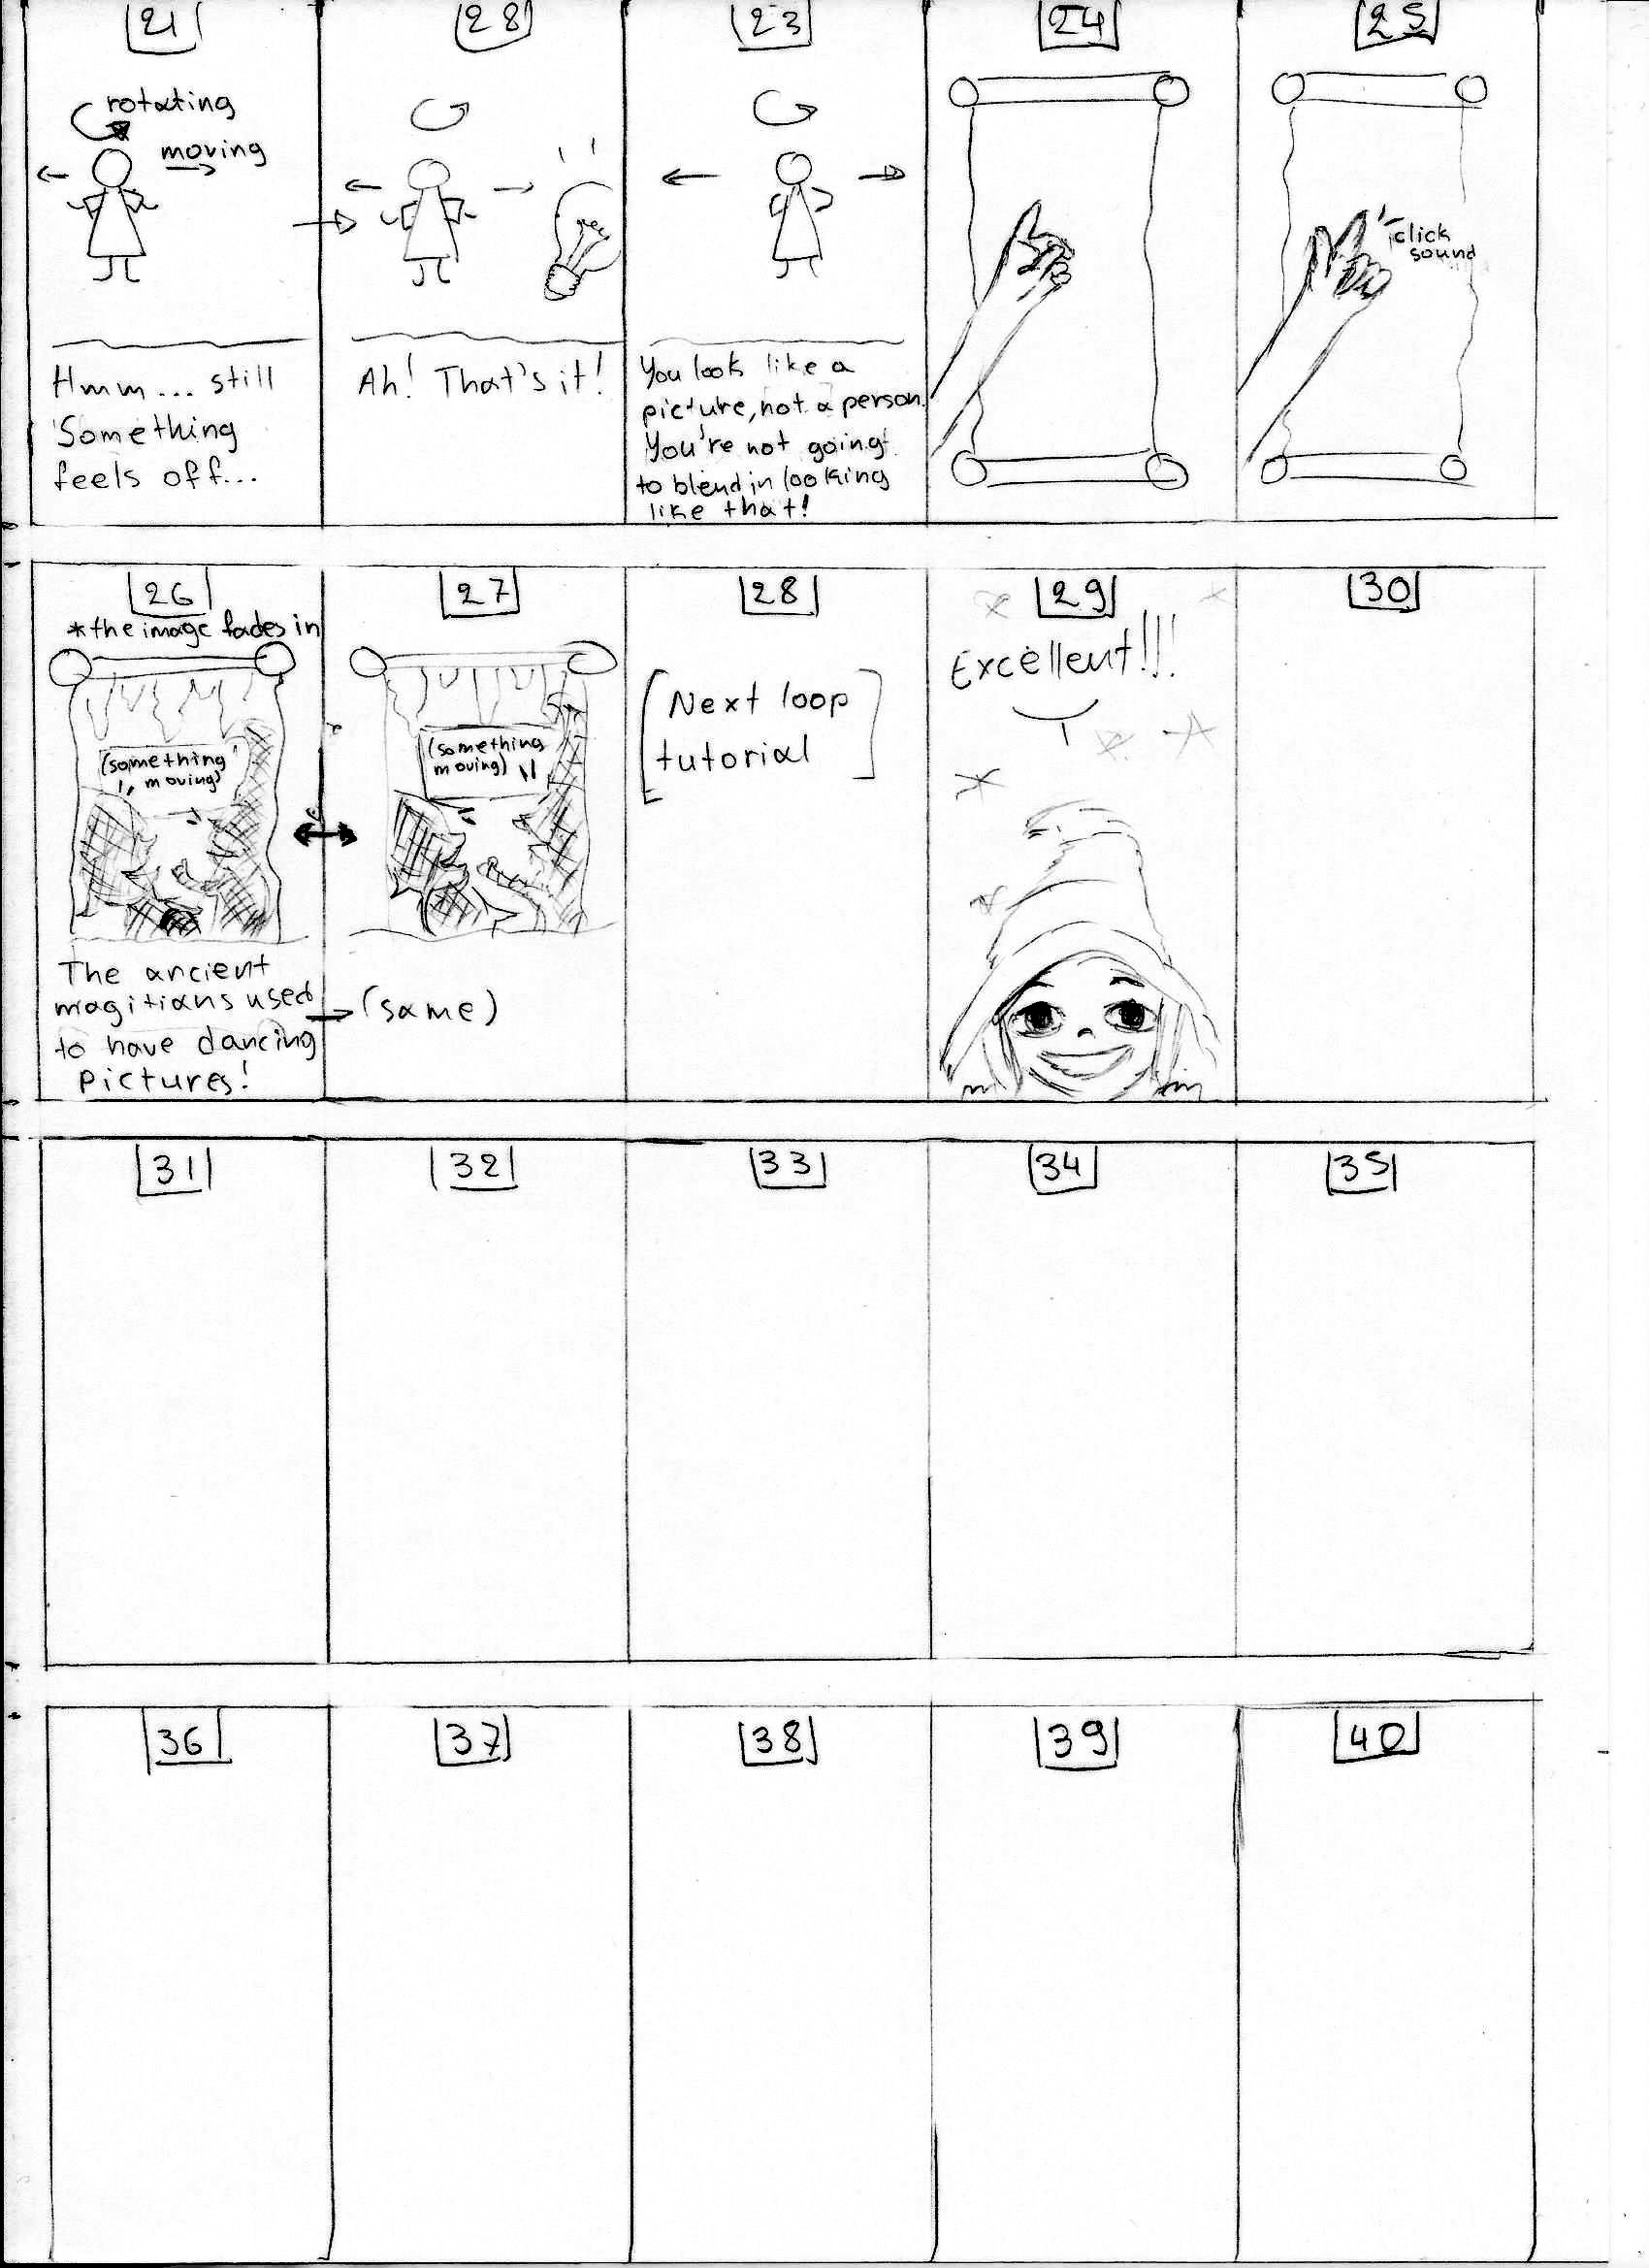 21
rotating
moving
Hmm... still
Something
feels off...
28
Ah! That's it!
23
You look like a
picture, not a person.
You're not going
to blend in looking
like that!
24
25
click
sound
26
*the image fades in
(something
moving)
The ancient
magitians used
to have dancing
pictures!
27
(something
moving)
(same)
28
[Next loop
tutorial]
29
Excellent!!!
30
31
32
33
34
35
36
37
38
39
40